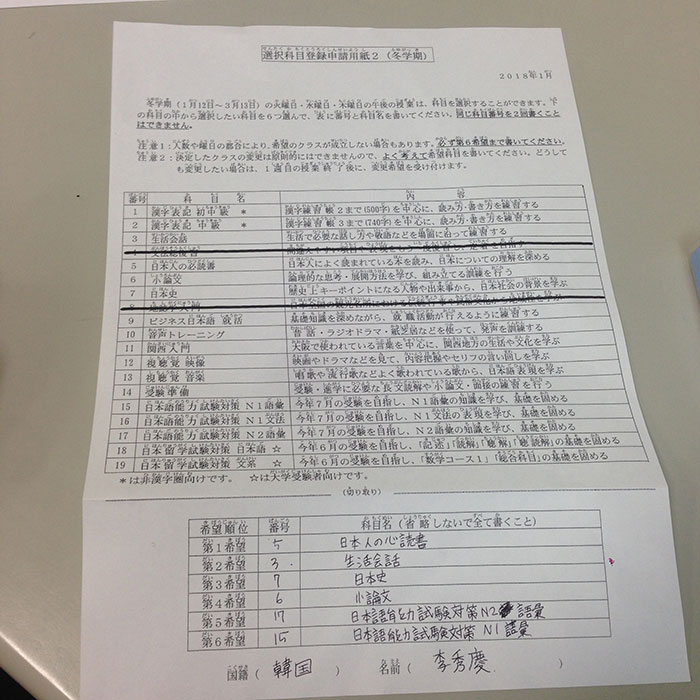 選択科目登録申請用紙2（冬学期）
2018年1月
冬学期（1月12日～3月13日）の火曜日・水曜日・木曜日の午後の授業は、科目を選択することができます。下
の科目の中から選択したい科目を6つ選んで、表に番号と科目名を書いてください。同じ科目番号を2回書くこと
はできません。
注意1：人数や曜日の都合により、希望のクラスが成立しない場合もあります。必ず第6希望まで書いてください。
注意2：決定したクラスの変更は原則的にはできませんので、よく考えて希望科目を書いてください。どうして
も変更したい場合は、1週目の授業終了後に、変更希望を受け付けます。
番号 科目名 内容
1 漢字表記 初中級 * 漢字練習帳2まで(500字)を中心に、読み方・書き方を練習する
2 漢字表記 中級 * 漢字練習帳3まで(740字)を中心に、読み方・書き方を練習する
3 生活会話 生活で必要な話し方や敬語などを場面に沿って練習する
4 文法総復習
5 日本人の必読書 日本人によく読まれている本を読み、日本についての理解を深める
6 小論文 論理的な思考・展開方法を学び、組み立てる訓練を行う
7 日本史 歴史上キーポイントになる人物や出来事から、日本社会の背景を学ぶ
8
9 ビジネス日本語 就活 基礎知識を深めながら、就職活動が行えるように練習する
10 音声トレーニング 昔話・ラジオドラマ・紙芝居などを使って、発声を訓練する
11 関西入門 大阪で使われている言葉を中心に、関西地方の生活や文化を学ぶ
12 視聴覚 映像 映画やドラマなどを見て、内容把握やセリフの言い回しを学ぶ
13 視聴覚 音楽 唱歌や流行歌などよく歌われている歌から、日本語表現を学ぶ
14 受験準備 受験・進学に必要な長文読解や小論文・面接の練習を行う
15 日本語能力試験対策 N1語彙 今年7月の受験を目指し、N1語彙の知識を学び、基礎を固める
16 日本語能力試験対策 N1文法 今年7月の受験を目指し、N1文法の表現を学び、基礎を固める
17 日本語能力試験対策 N2語彙 今年7月の受験を目指し、N2語彙の知識を学び、基礎を固める
18 日本留学試験対策 日本語 ☆ 今年6月の受験を目指し、「記述」「読解」「聴解」「聴読解」の基礎を固める
19 日本留学試験対策 文系 ☆ 今年6月の受験を目指し、「数学コース1」「総合科目」の基礎を固める
*は非漢字圏向けです。 ☆は大学受験者向けです。
(切り取り)
希望順位 番号 科目名（省略しないで全て書くこと）
第1希望 5 日本人の心読書
第2希望 3. 生活会話
第3希望 7 日本史
第4希望 6 小論文
第5希望 17 日本語能力試験対策N2 語彙
第6希望 15 日本語能力試験対策 N1 語彙
国籍（ 韓国 ） 名前（ 李秀慶 ）